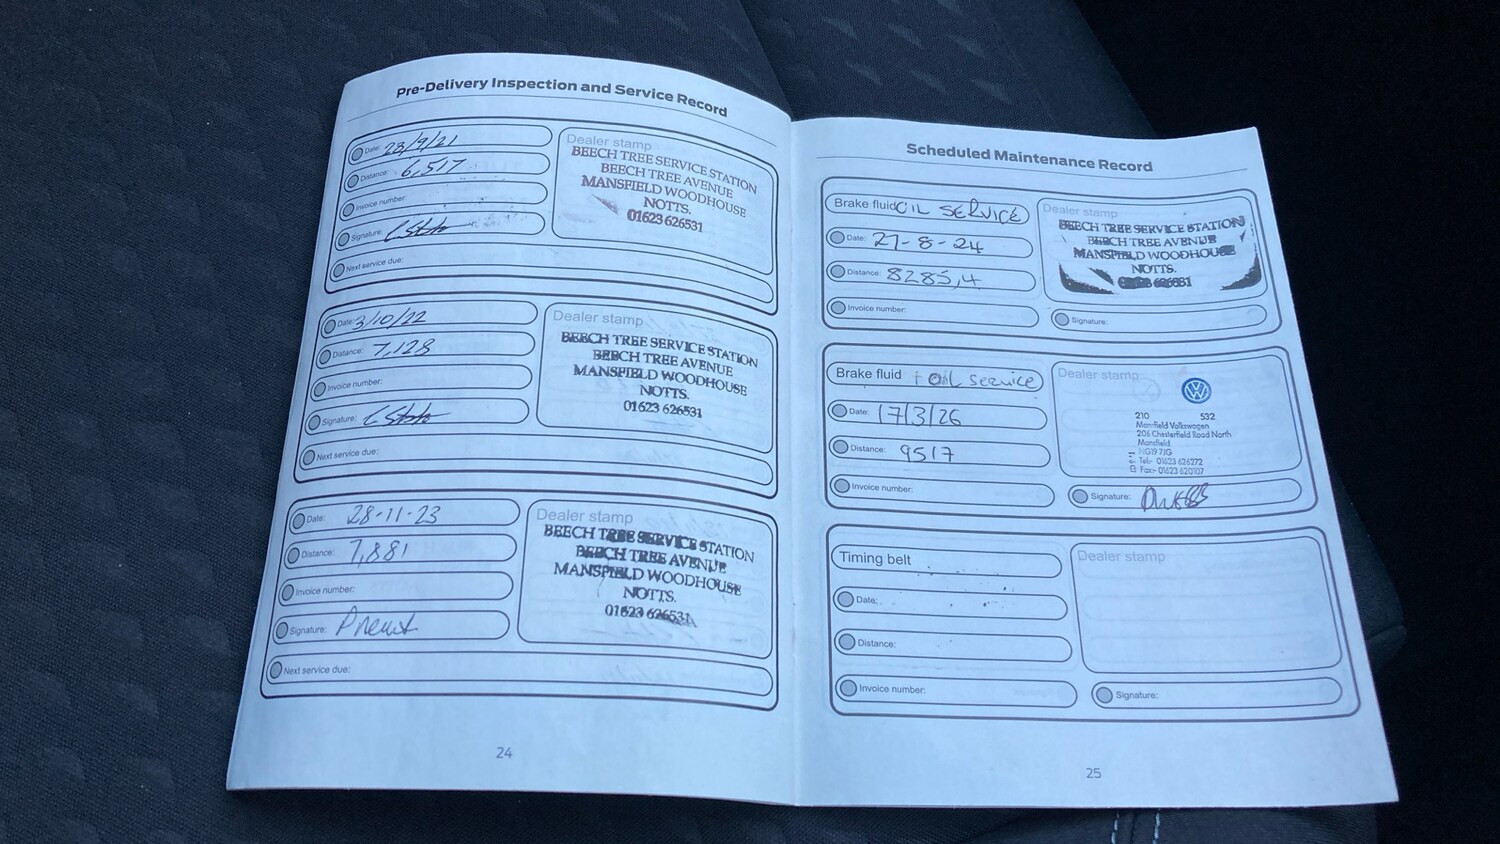 Pre-Delivery Inspection and Service Record
Date: 28/9/21
Distance: 6,517
Invoice number:
Signature:
Next service due:
Dealer stamp
BEECH TREE SERVICE STATION
BEECH TREE AVENUE
MANSFIELD WOODHOUSE
NOTTS.
01623 626531
Date: 3/10/22
Distance: 7,128
Invoice number:
Signature:
Next service due:
Dealer stamp
BEECH TREE SERVICE STATION
BEECH TREE AVENUE
MANSFIELD WOODHOUSE
NOTTS.
01623 626531
Date: 28-11-23
Distance: 7,881
Invoice number:
Signature:
Next service due:
Dealer stamp
BEECH TREE SERVICE STATION
BEECH TREE AVENUE
MANSFIELD WOODHOUSE
NOTTS.
01623 626531
24
Scheduled Maintenance Record
Brake fluid OIL SERVICE
Date: 27-8-24
Distance: 8285,4
Invoice number:
Dealer stamp
BEECH TREE SERVICE STATION
BEECH TREE AVENUE
MANSFIELD WOODHOUSE
NOTTS.
01623 626531
Signature:
Brake fluid + OIL service
Date: 17/3/26
Distance: 9517
Invoice number:
Dealer stamp
210 532
Mansfield Volkswagen
206 Chesterfield Road North
Mansfield
NG19 7JG
Tel:- 01623 626272
Fax:- 01623 620107
Signature:
Timing belt
Date:
Distance:
Invoice number:
Dealer stamp
Signature:
25